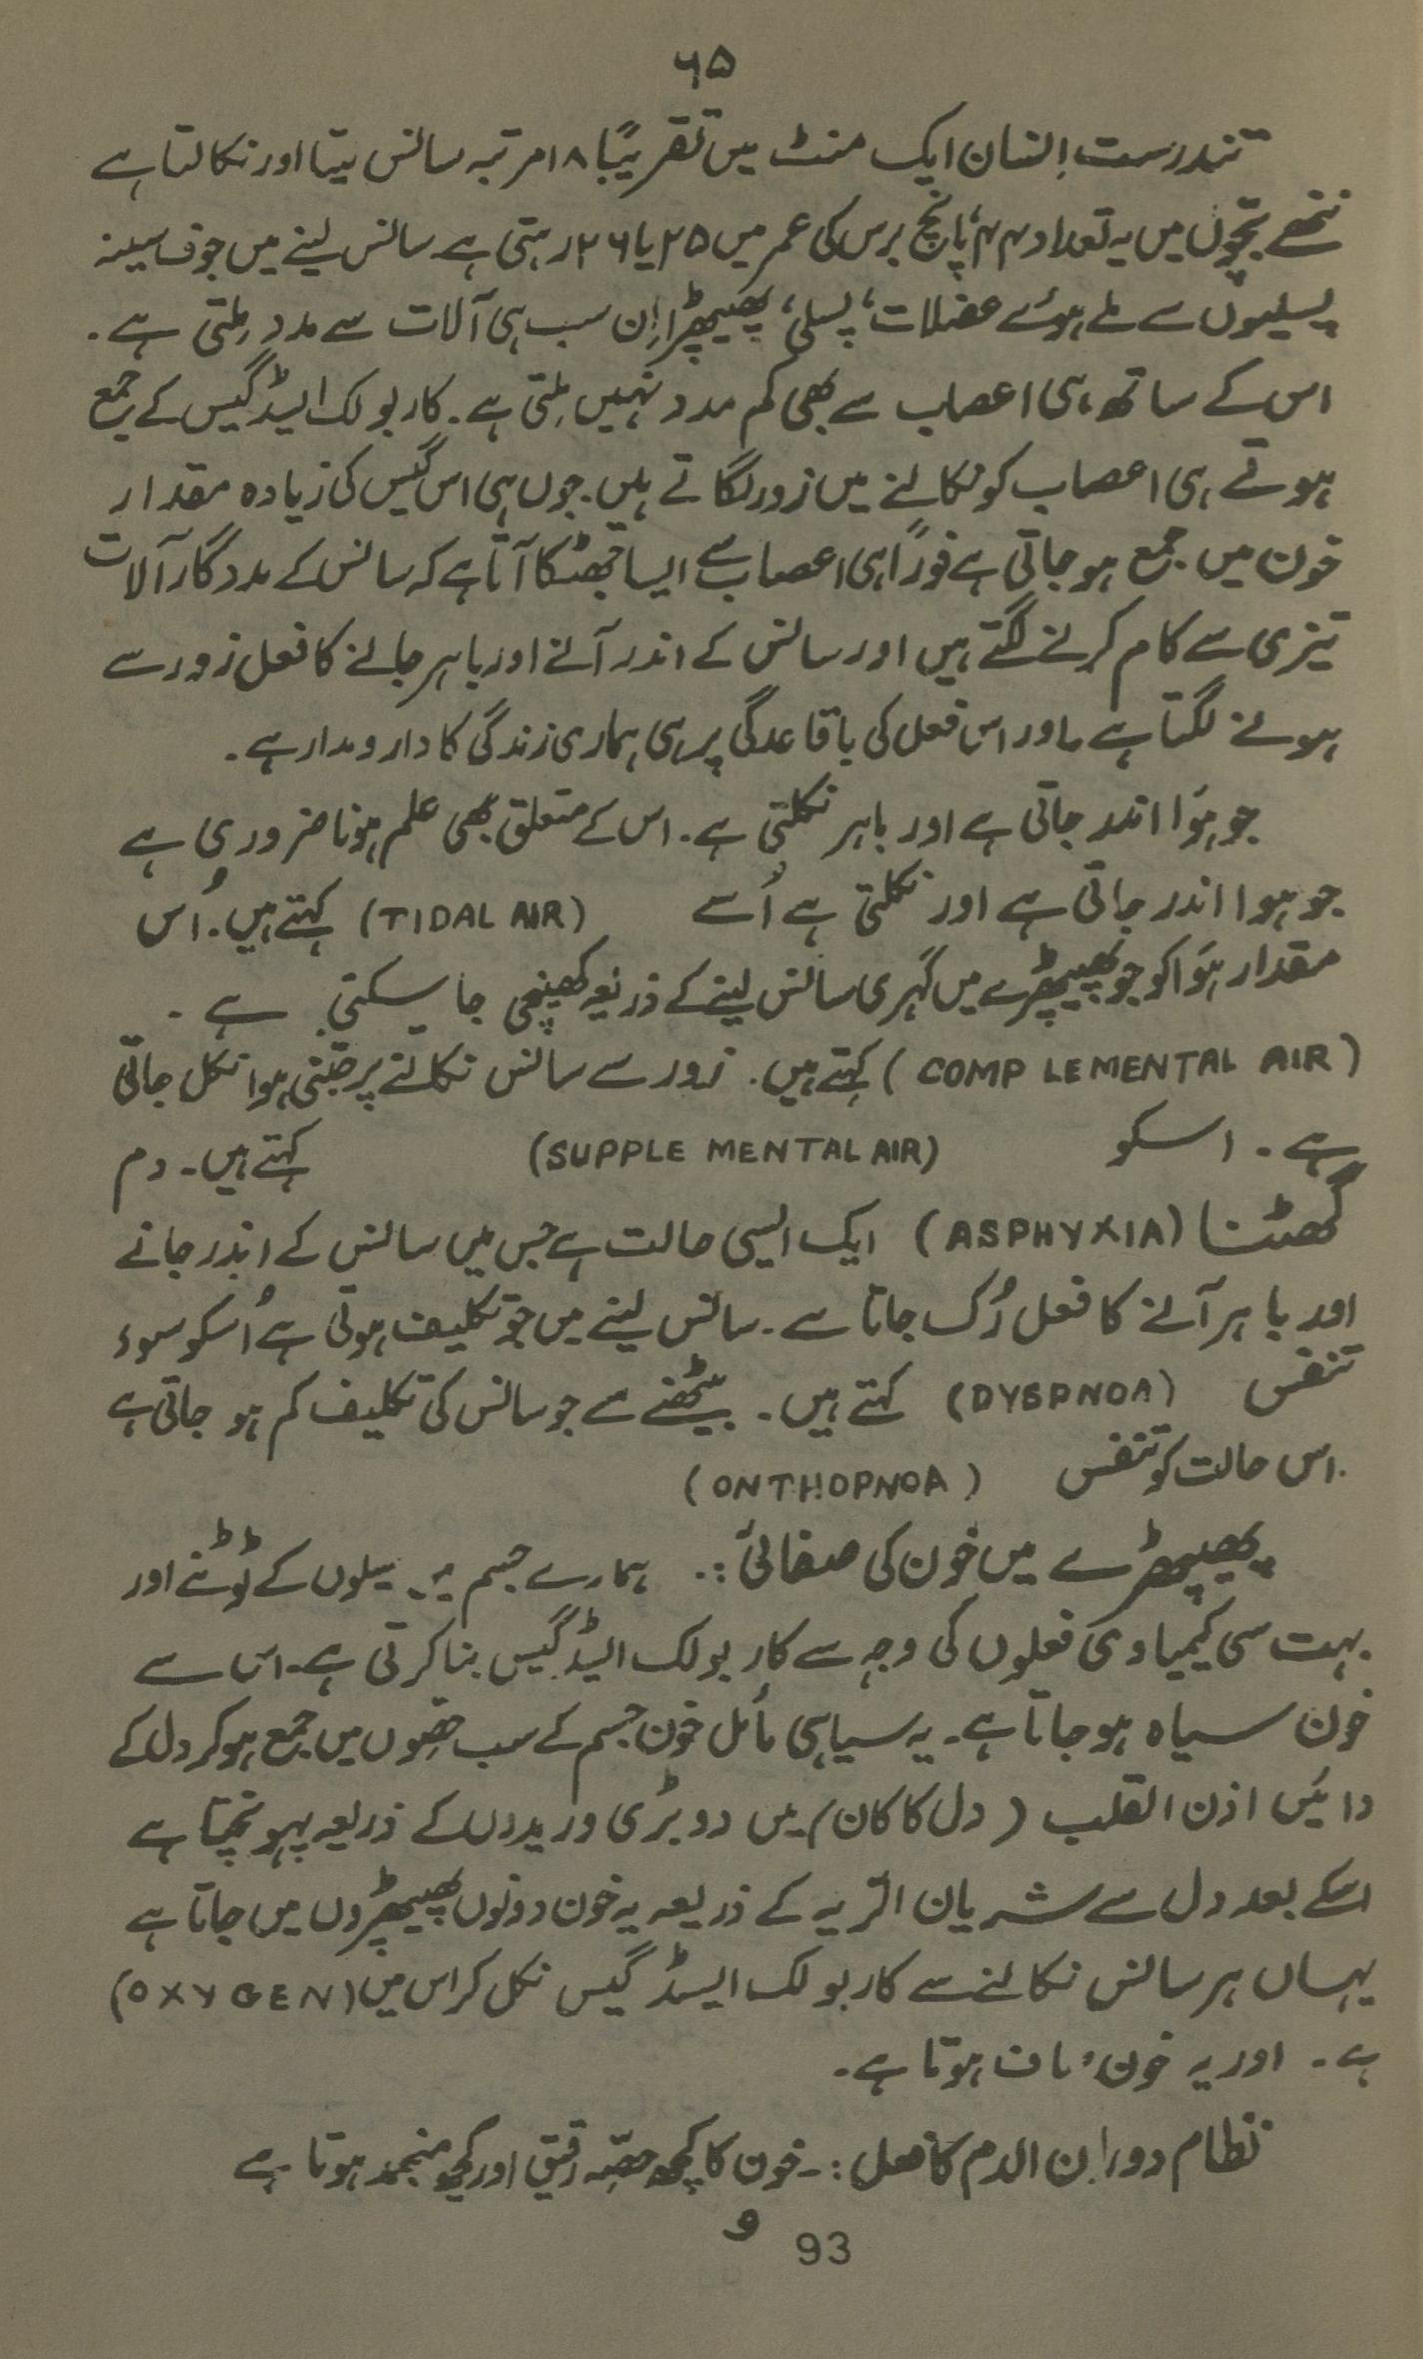 ۶۵
تندرست اِنسان ایک منٹ میں تقریبًا ۱۸ مرتبہ سانس لیتا اور نکالتا ہے
ننھے بچّوں میں یہ تعداد ۴۴، پانچ برس کی عمر میں ۲۵ یا ۲۶ رہتی ہے سانس لینے میں جوف سینہ
پسلیوں سے ملے ہوئے عضلات، پسلی، پھیپھڑا اِن سب ہی آلات سے مدد مِلتی ہے.
اس کے ساتھ ہی اعصاب سے بھی کم مدد نہیں مِلتی ہے. کاربولک ایسڈ گیس کے جمع
ہوتے ہی اعصاب کو نکالنے میں زور لگاتے ہیں. جوں ہی اس گیس کی زیادہ مقدار
خون میں جمع ہو جاتی ہے فورًا ہی اعصاب سے ایسا جھٹکا آتا ہے کہ سانس کے مددگار آلات
تیزی سے کام کرنے لگتے ہیں اور سانس کے اندر آنے اور باہر جانے کا فعل زور سے
ہونے لگتا ہے اور اس فعل کی باقاعدگی پر ہی ہماری زندگی کا دارومدار ہے.
جو ہَوا اندر جاتی ہے اور باہر نکلتی ہے. اس کے متعلق بھی علم ہونا ضروری ہے
جو ہوا اندر جاتی ہے اور نکلتی ہے اُسے (TIDAL AIR) کہتے ہیں. اُس
مقدار ہَوا کو جو پھیپھڑے میں گہری سانس لینے کے ذریعہ کھینچی جا سکتی ہے -
(COMP LEMENTAL AIR) کہتے ہیں. زور سے سانس نکالنے پر جتنی ہوا نکل جاتی
ہے. اسکو (SUPPLE MENTAL AIR) کہتے ہیں - دم
گھٹنا (ASPHYXIA) ایک ایسی حالت ہے جس میں سانس کے اندر جانے
اور باہر آنے کا فعل رُک جاتا ہے. سانس لینے میں جو تکلیف ہوتی ہے اُسکو سوء
تنفس (DYSPNOA) کہتے ہیں. بیٹھنے سے جو سانس کی تکلیف کم ہو جاتی ہے
اس حالت کو تنفس (ONTHOPNOA)
پھیپھڑے میں خون کی صفائی :. ہمارے جسم میں سیلوں کے ٹوٹنے اور
بہت سی کیمیاوی فعلوں کی وجہ سے کاربولک ایسڈ گیس بنا کرتی ہے. اس سے
خون سیاہ ہو جاتا ہے. یہ سیاہی مائل خون جسم کے سب حصّوں میں جمع ہو کر دل کے
دائیں اذن القلب (دل کا کان) میں دو بڑی وریدوں کے ذریعہ پہونچتا ہے
اسکے بعد دل سے شریان الریہ کے ذریعہ یہ خون دونوں پھیپھڑوں میں جاتا ہے
یہاں ہر سانس نکالنے سے کاربولک ایسڈ گیس نکل کر اس میں (OXYGEN)
ہے. اور یہ خون صاف ہوتا ہے.
نظام دوران الدم کا فعل :- خون کا کچھ حصّہ رقیق اور کچھ منجمد ہوتا ہے
و
93